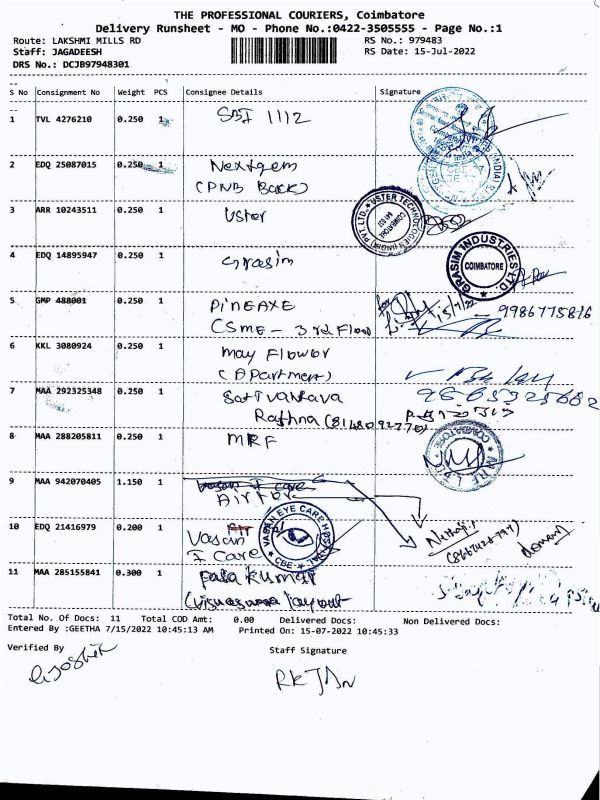 THE PROFESSIONAL COURIERS, Coimbatore
Delivery Runsheet - MO - Phone No.:0422-3505555 - Page No.:1
Route: LAKSHMI MILLS RD RS No.: 979483
Staff: JAGADEESH RS Date: 15-Jul-2022
DRS No.: DCJB97948301
S No Consignment No Weight PCS Consignee Details Signature
1 TVL 4276210 0.250 1 SBI 1112
2 EDQ 25087015 0.250 1 Nextgem
(PNB Back)
3 ARR 10243511 0.250 1 Uster
USTER TECHNOLOGIES (INDIA) PVT. LTD.
COIMBATORE
4 EDQ 14895947 0.250 1 Grasim
GRASIM INDUSTRIES LTD.
COIMBATORE
5 GMP 488001 0.250 1 PiNEAXE
(SME - 3rd Floor 15/7/22 9986775816
6 KKL 3080924 0.250 1 may Flower
(Apartment)
7 MAA 292325348 0.250 1 Sattvankava
Rathna (8148092770)
8 MAA 288205811 0.250 1 MRF
COIMBATORE
9 MAA 942070405 1.150 1 Vasan I care
Airtel
10 EDQ 21416979 0.200 1 Vasan
I Care
VASAN EYE CARE HOSPITAL
CBE
11 MAA 285155841 0.300 1 Pala kumar
layout
Total No. Of Docs: 11 Total COD Amt: 0.00 Delivered Docs: Non Delivered Docs:
Entered By :GEETHA 7/15/2022 10:45:13 AM Printed On: 15-07-2022 10:45:33
Verified By Staff Signature